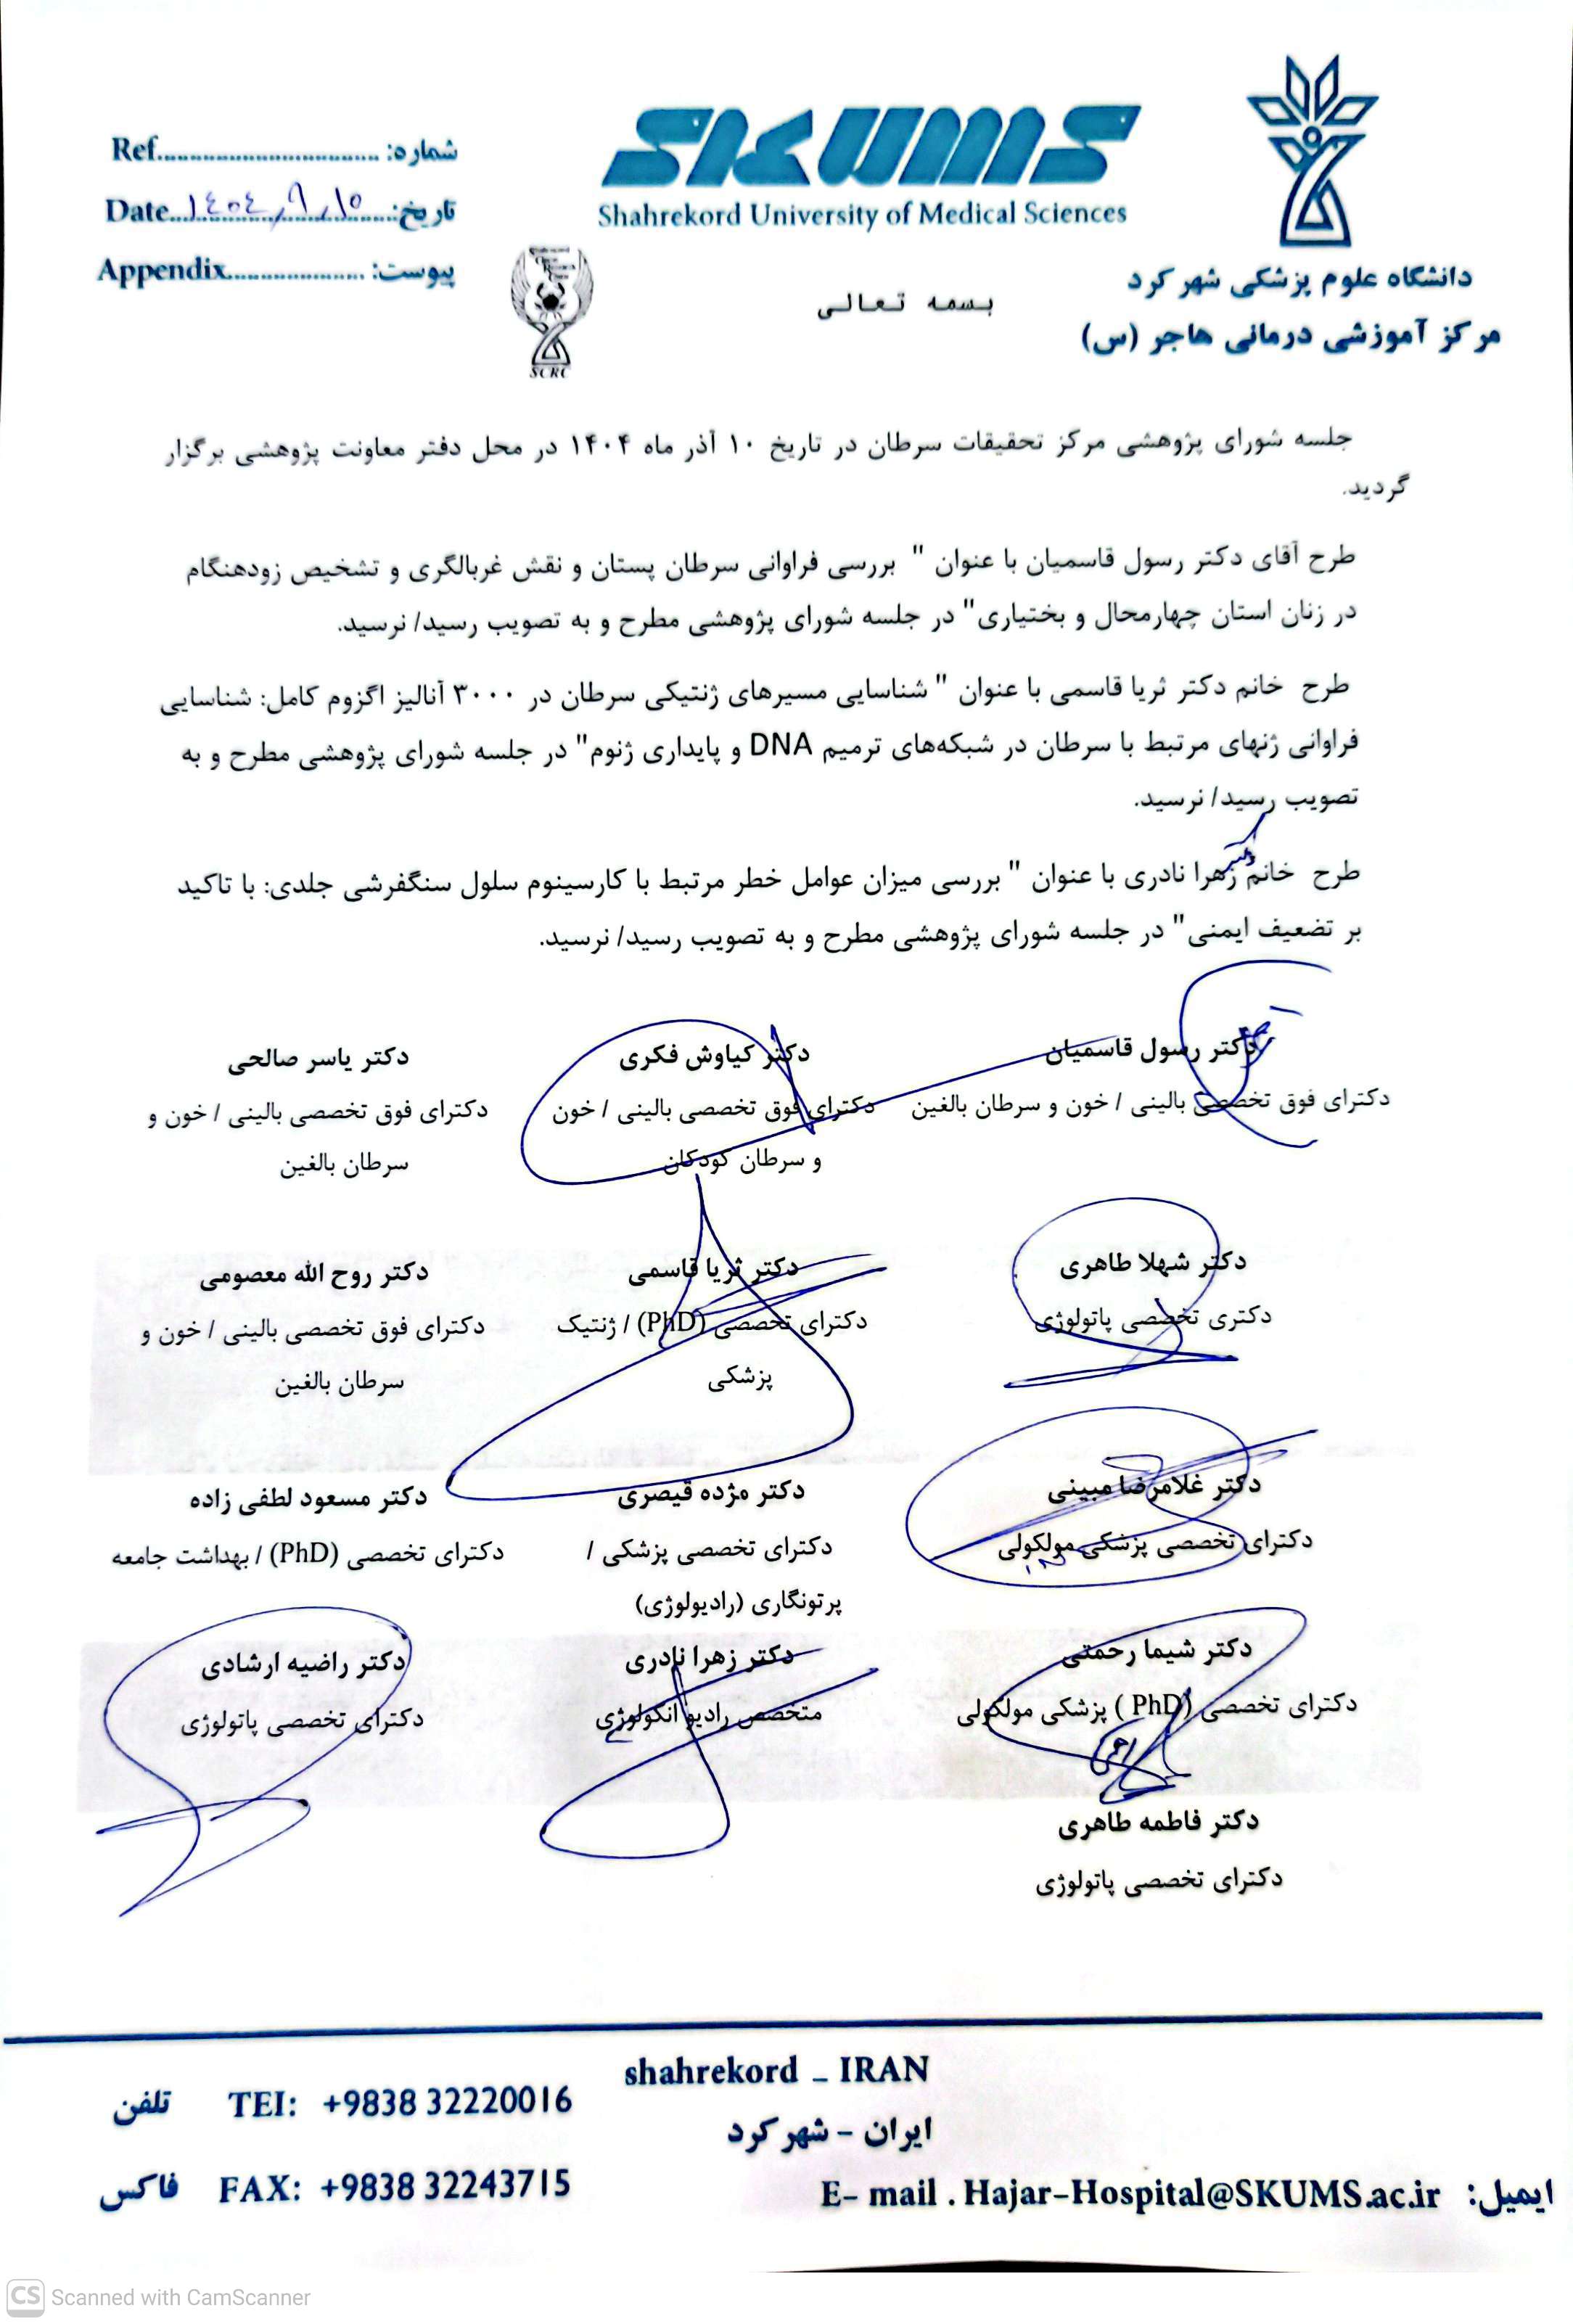 SKUMS
Shahrekord University of Medical Sciences
دانشگاه علوم پزشکی شهرکرد
مرکز آموزشی درمانی هاجر (س)
Ref................................ شماره:
Date...۱۴۰۴/۹/۱۰...تاریخ:
Appendix.................... پیوست:
SCRC
بسمه تعالی
جلسه شورای پژوهشی مرکز تحقیقات سرطان در تاریخ ۱۰ آذر ماه ۱۴۰۴ در محل دفتر معاونت پژوهشی برگزار
گردید.
طرح آقای دکتر رسول قاسمیان با عنوان " بررسی فراوانی سرطان پستان و نقش غربالگری و تشخیص زودهنگام
در زنان استان چهارمحال و بختیاری" در جلسه شورای پژوهشی مطرح و به تصویب رسید/ نرسید.
طرح خانم دکتر ثریا قاسمی با عنوان " شناسایی مسیرهای ژنتیکی سرطان در ۳۰۰۰ آنالیز اگزوم کامل: شناسایی
فراوانی ژنهای مرتبط با سرطان در شبکه‌های ترمیم DNA و پایداری ژنوم" در جلسه شورای پژوهشی مطرح و به
تصویب رسید/ نرسید.
طرح خانم زهرا نادری با عنوان " بررسی میزان عوامل خطر مرتبط با کارسینوم سلول سنگفرشی جلدی: با تاکید
بر تضعیف ایمنی" در جلسه شورای پژوهشی مطرح و به تصویب رسید/ نرسید.
دکتر رسول قاسمیان
دکترای فوق تخصصی بالینی / خون و سرطان بالغین
دکتر کیاوش فکری
دکترای فوق تخصصی بالینی / خون
و سرطان کودکان
دکتر یاسر صالحی
دکترای فوق تخصصی بالینی / خون و
سرطان بالغین
دکتر شهلا طاهری
دکتری تخصصی پاتولوژی
دکتر ثریا قاسمی
دکترای تخصصی (PhD) / ژنتیک
پزشکی
دکتر روح الله معصومی
دکترای فوق تخصصی بالینی / خون و
سرطان بالغین
دکتر غلامرضا مبینی
دکترای تخصصی پزشکی مولکولی
دکتر مژده قیصری
دکترای تخصصی پزشکی /
پرتونگاری (رادیولوژی)
دکتر مسعود لطفی زاده
دکترای تخصصی (PhD) / بهداشت جامعه
دکتر شیما رحمتی
دکترای تخصصی (PhD ) پزشکی مولکولی
دکتر زهرا نادری
متخصص رادیو انکولوژی
دکتر راضیه ارشادی
دکترای تخصصی پاتولوژی
دکتر فاطمه طاهری
دکترای تخصصی پاتولوژی
shahrekord _ IRAN
ایران - شهرکرد
تلفن TEl: +9838 32220016
فاکس FAX: +9838 32243715
ایمیل: E- mail . Hajar-Hospital@SKUMS.ac.ir
CS Scanned with CamScanner